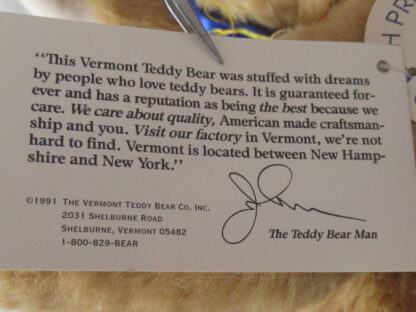 "This Vermont Teddy Bear was stuffed with dreams
by people who love teddy bears. It is guaranteed for-
ever and has a reputation as being the best because we
care. We care about quality, American made craftsman-
ship and you. Visit our factory in Vermont, we're not
hard to find. Vermont is located between New Hamp-
shire and New York."
©1991 THE VERMONT TEDDY BEAR CO. INC.
2031 SHELBURNE ROAD
SHELBURNE, VERMONT 05482
1-800-829-BEAR
The Teddy Bear Man